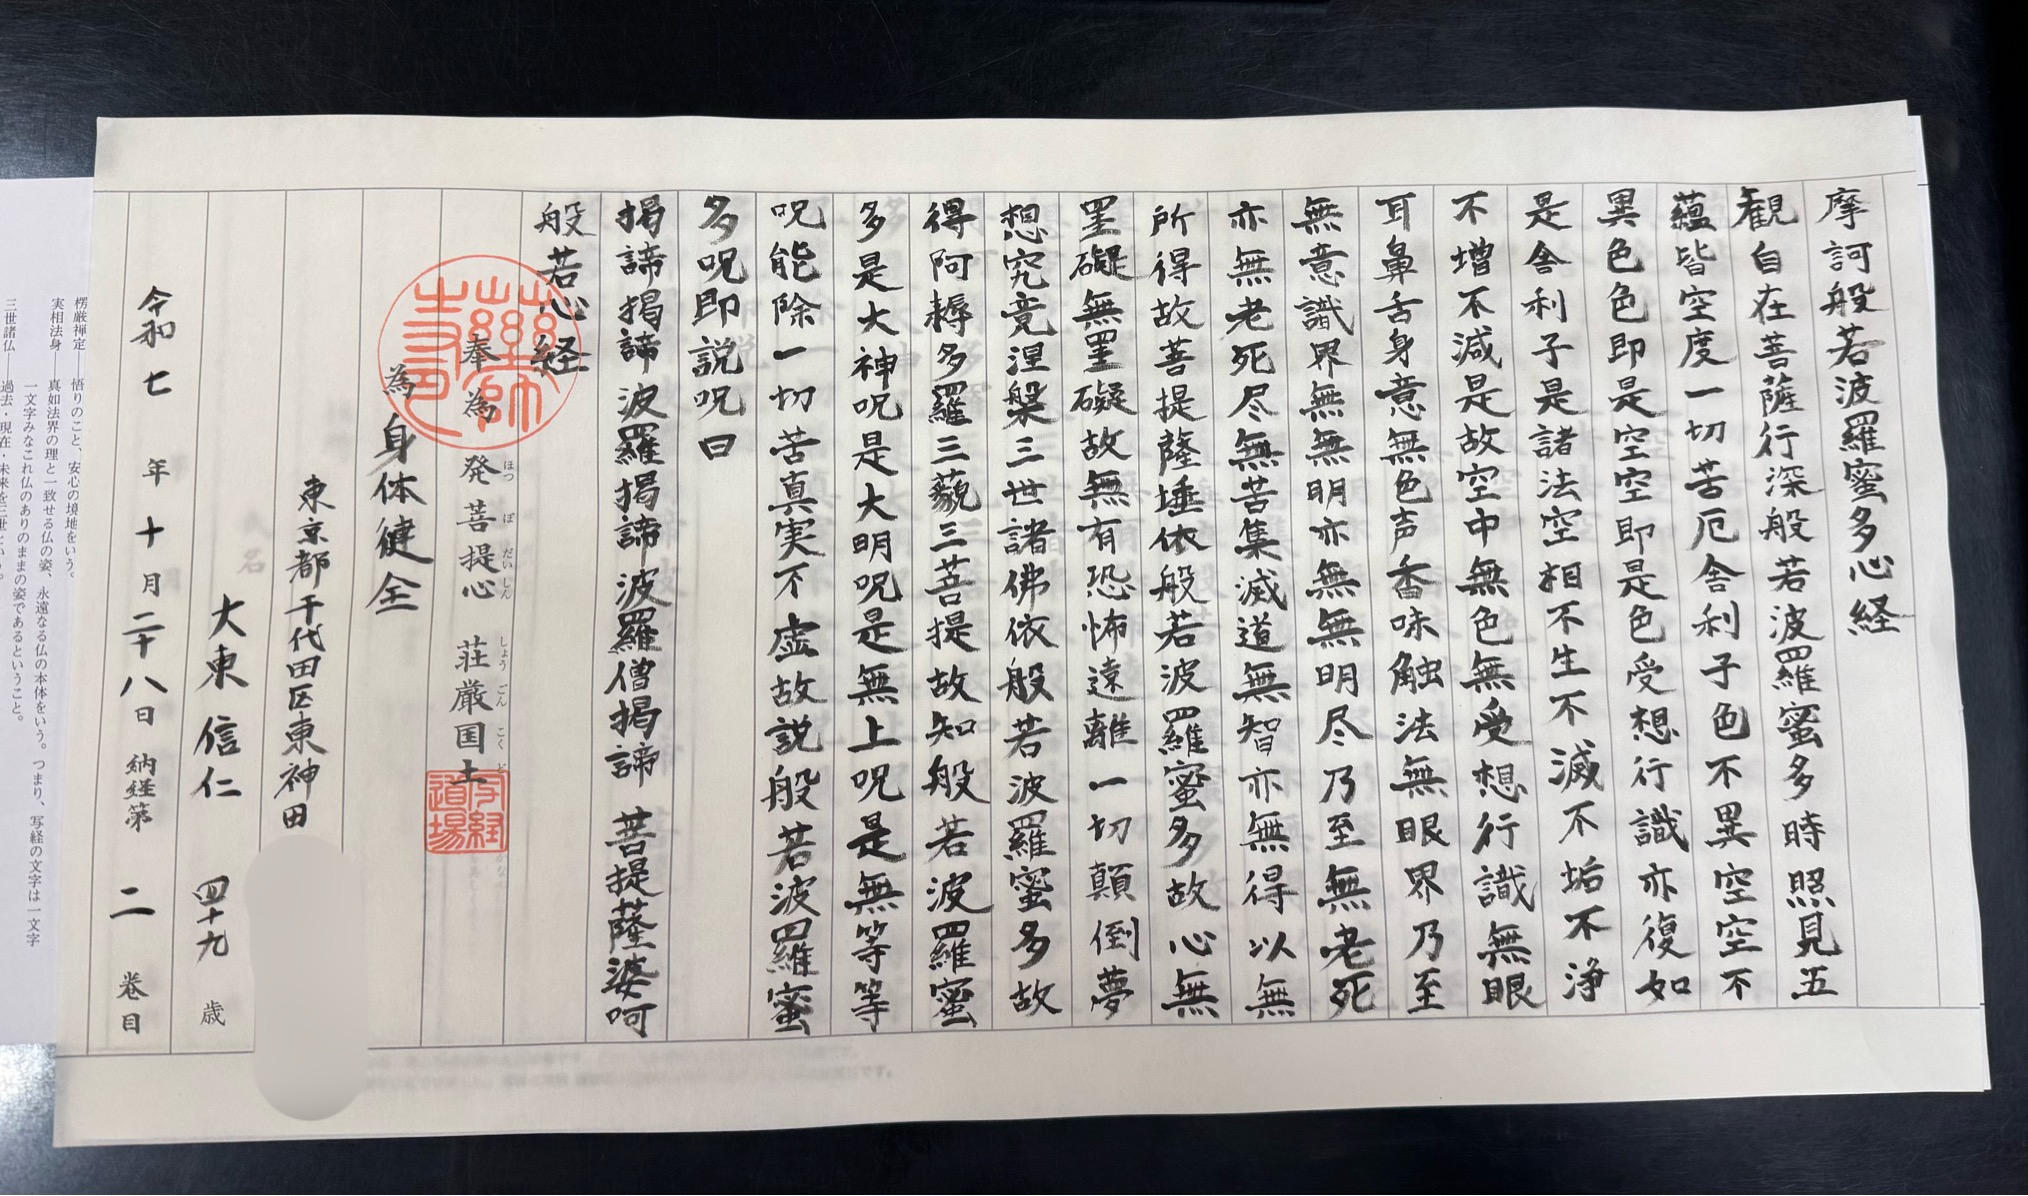 摩訶般若波羅蜜多心経
観自在菩薩行深般若波羅蜜多時照見五
蘊皆空度一切苦厄舎利子色不異空空不
異色色即是空空即是色受想行識亦復如
是舎利子是諸法空相不生不滅不垢不浄
不増不減是故空中無色無受想行識無眼
耳鼻舌身意無色声香味触法無眼界乃至
無意識界無無明亦無無明尽乃至無老死
亦無老死尽無苦集滅道無智亦無得以無
所得故菩提薩埵依般若波羅蜜多故心無
罣礙無罣礙故無有恐怖遠離一切顛倒夢
想究竟涅槃三世諸佛依般若波羅蜜多故
得阿耨多羅三藐三菩提故知般若波羅蜜
多是大神呪是大明呪是無上呪是無等等
呪能除一切苦真実不虚故説般若波羅蜜
多呪即説呪曰
掲諦掲諦波羅掲諦波羅僧掲諦 菩提薩婆呵
般若心経
薬師寺
奉為 発菩提心 荘厳国土
ほつ ぼ だい しん しょう ごん こく ど
写経道場
為 身体健全
東京都千代田区東神田
大東信仁 四十九 歳
令和七年十月二十八日 納経第 二 巻目
楞厳禅定――悟りのこと、安心の境地をいう。
実相法身――真如法界の理と一致せる仏の姿、永遠なる仏の本体をいう。つまり、写経の文字は一文字
一文字みなこれ仏のありのままの姿であるということ。
三世諸仏――過去・現在・未来を三世という。